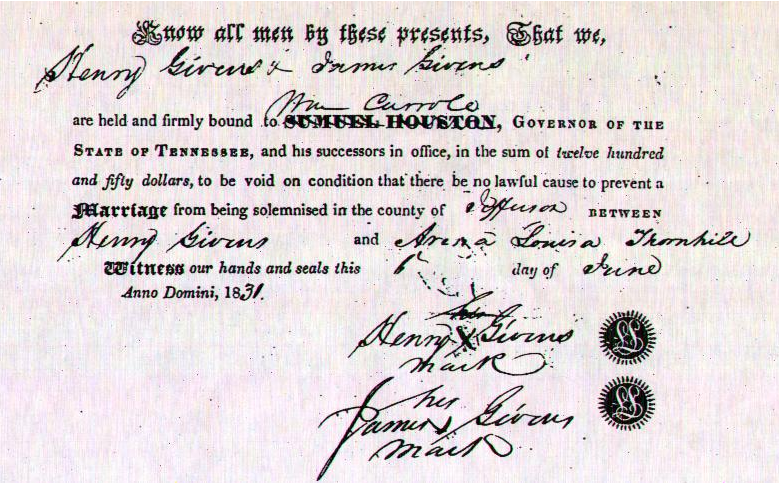 Know all men by these presents, That we,
Henry Givens & James Givens
Wm Carrole
are held and firmly bound to SUMUEL HOUSTON, GOVERNOR OF THE
STATE OF TENNESSEE, and his successors in office, in the sum of twelve hundred
and fifty dollars, to be void on condition that there be no lawful cause to prevent a
Marriage from being solemnised in the county of Jefferson BETWEEN
Henry Givens and Arena Louisa Thornhill
Witness our hands and seals this 6 day of June
Anno Domini, 1831.
his
Henry X Givens
mark
his
James Givens
mark
LS
LS